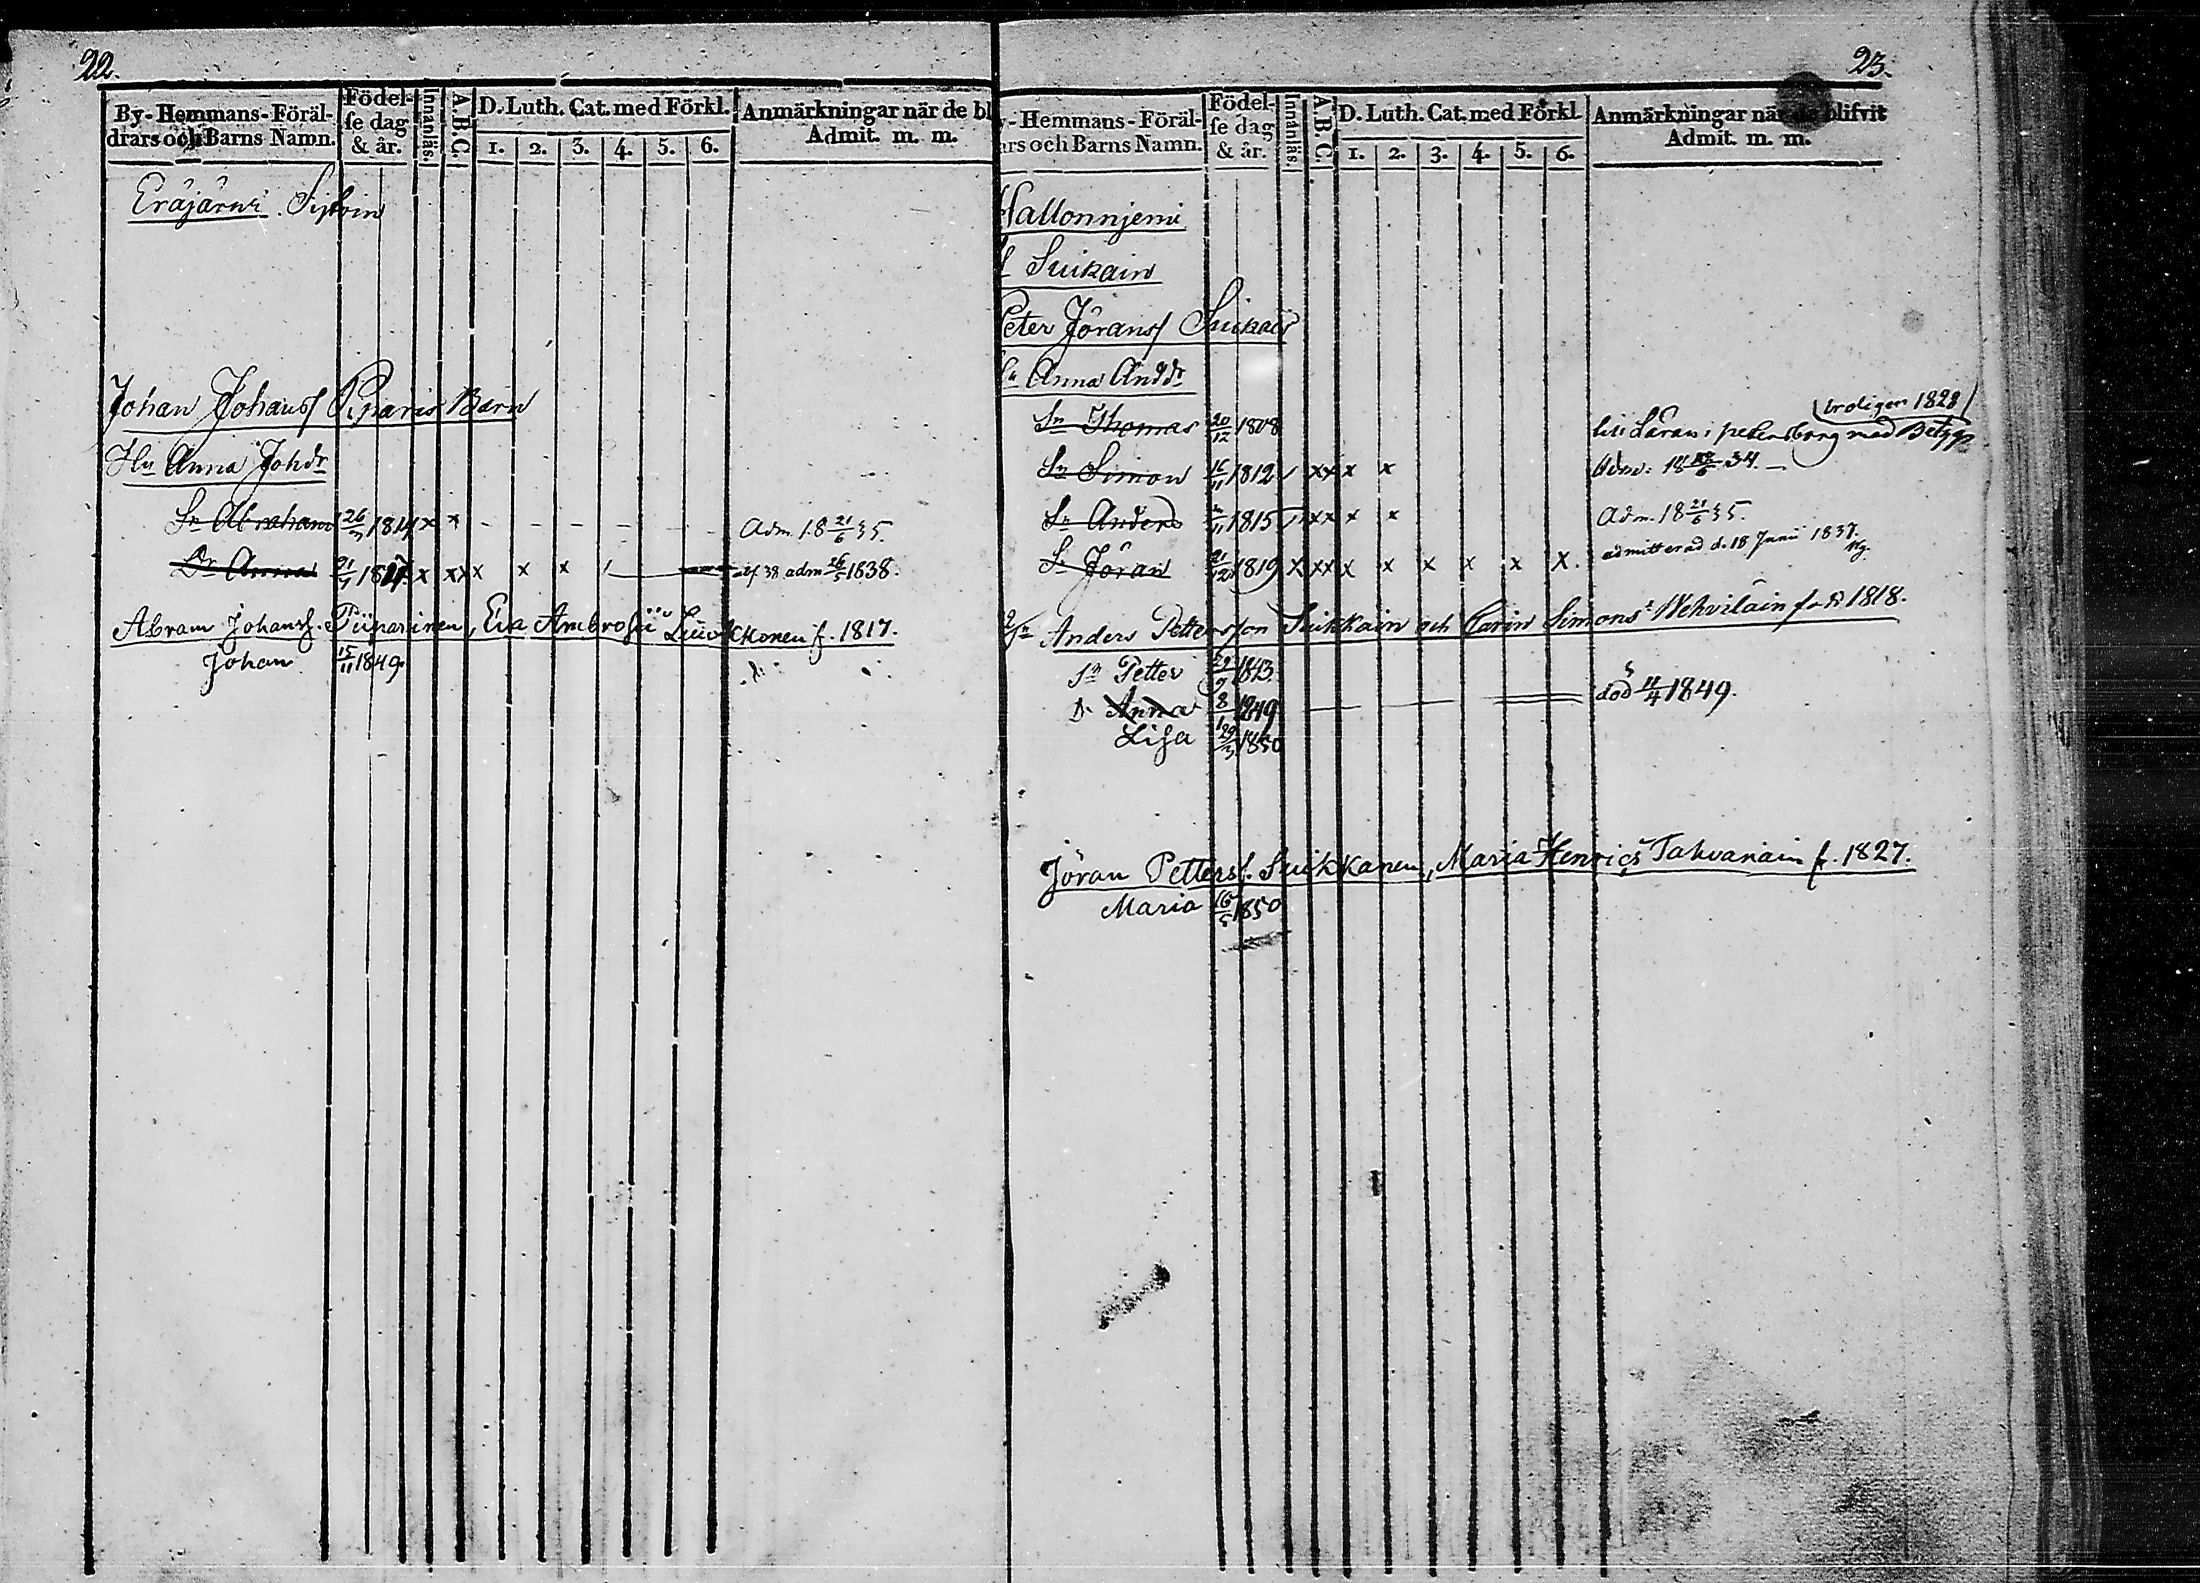 22.
By-Hemmans-Föräl-
drars och Barns Namn.
Födel-
se dag
& år.
Innanläs.
A.B.C.
D. Luth. Cat. med Förkl.
1. 2. 3. 4. 5. 6.
Anmärkningar när de bl
Admit. m. m.
Eräjärwi
Johan Johanss Barn
Hu Anna Johdr
Sn Abraham 26/3 1814 x x - - - - - - Adm. 18 21/6 35.
Dr Anna 21/1 x xx x x x adm 26/5 1838.
Abram Johanss. Piiparinen, Eva Ambrosii Liukkonen f. 1817.
Johan 15/11 1849
23.
y-Hemmans-Föräl-
ars och Barns Namn.
Födel-
se dag
& år.
Innanläs.
A.B.C.
D. Luth. Cat. med Förkl.
1. 2. 3. 4. 5. 6.
Anmärkningar när de blifvit
Admit. m. m.
Hallonnjemi
Suikain
Peter Jöranss Suikain
Hu Anna Anddr
Sn Thomas 20/12 1808 i petersborg med
troligen 1828
Sn Simon 16/11 1812 xx x x
Sn Anders 1815 xx x x Adm. 18 21/6 35.
Sn Jöran 21/12 1819 x xx x x x x x x. admitterad d. 18 Junii 1837.
Anders Pettersson Suikkain och Carin Simons Wehviläin född 1818.
Sn Petter 29/9 1843.
D. Anna 8/1 1849 död 11/4 1849.
Lisa 29/3 1850
Jöran Petterss. Suikkanen, Maria Henrics Tahvanain f. 1827.
Maria 16/5 1850